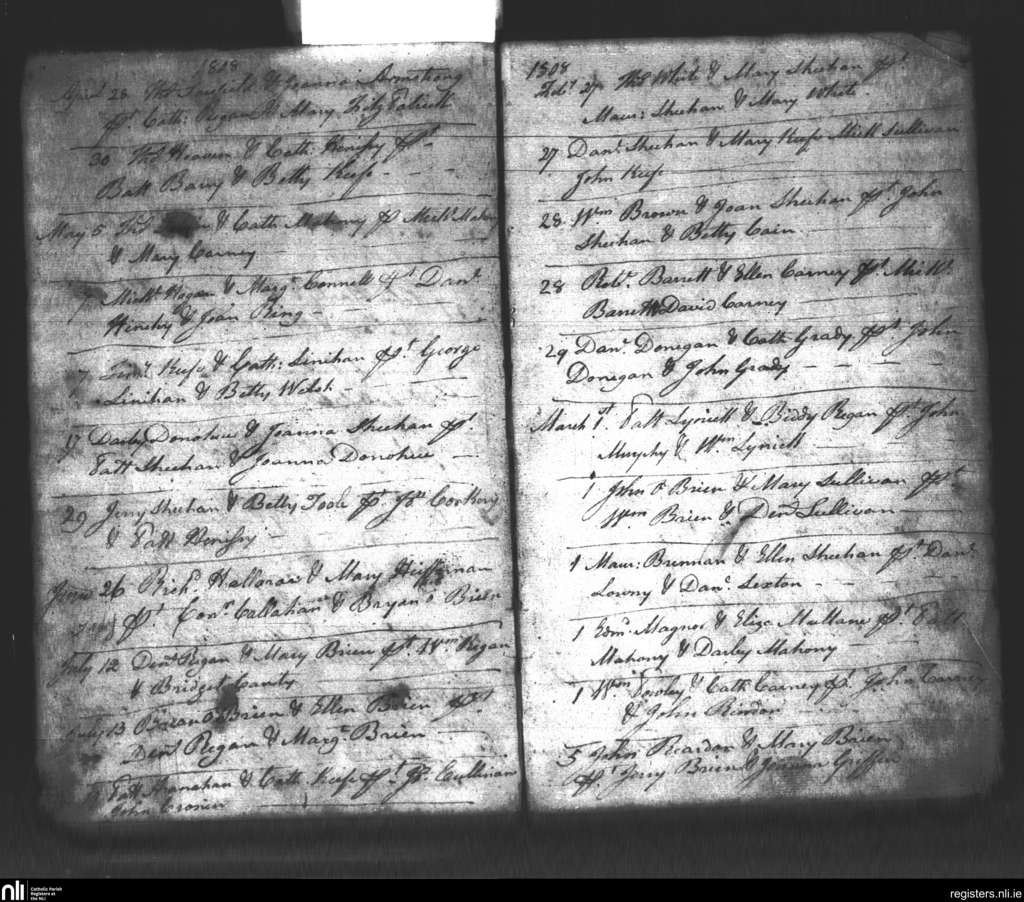 1808
April 28 Thos & Joanna Armstrong
pt. Cath: Regan & Mary Fitz Patrick
30 Thos Heaven & Cath: pt
Batt Barry & Betty Keefe
May 5 Thos & Cath Mahony pt Michl Mahony
& Mary Carney
7 Michl Hogan & Margt Connell pt Danl
Hinchy & Joan Ring
7 Keefe & Cath: Linihan pt George
Linihan & Betty Welsh
17 Darby Donohue & Joanna Sheehan pt
Patt Sheehan & Joanna Donohue
29 Jerry Sheehan & Betty Toole pt Jas Corkery
& Patt
June 26 Richd Halloran & Mary Heffernan
pt Conr Callahan & Bryan O Brien
July 12 Denl Regan & Mary Brien pt Wm Regan
& Bridget Canty
July 13 Brian O Brien & Ellen Brien pt
Denl Regan & Margt Brien
Patt & Cath Keefe pt Js Cullinan
John Cronin
1808
Feby 27 Thos White & Mary Sheehan pt
Maur: Sheehan & Mary White
27 Danl Sheehan & Mary Keefe Mick Sullivan
John Keefe
28 Wm Brown & Joan Sheehan pt John
Sheehan & Betty Cain
28 Robt Barrett & Ellen Carney pt
Barrett David Carney
29 Danl Donegan & Cath Grady pt John
Donegan & John Grady
March 1st Patt Lyriell & Biddy Regan pt John
Murphy & Wm Lyriell
1 John O Brien & Mary Sullivan pt
Wm Brien & Denl Sullivan
1 Maur: Brennan & Ellen Sheehan pt Danl
Lowny & Danl Sexton
1 Edmd Magner & Eliza Mullane pt Patt
Mahony & Darby Mahony
1 Wm & Cath Carney pt John Carney
& John Rindon
5 John Reardon & Mary Brien
pt Jerry Brien & Griffin
nli
Catholic Parish
Registers at
the NLI
registers.nli.ie